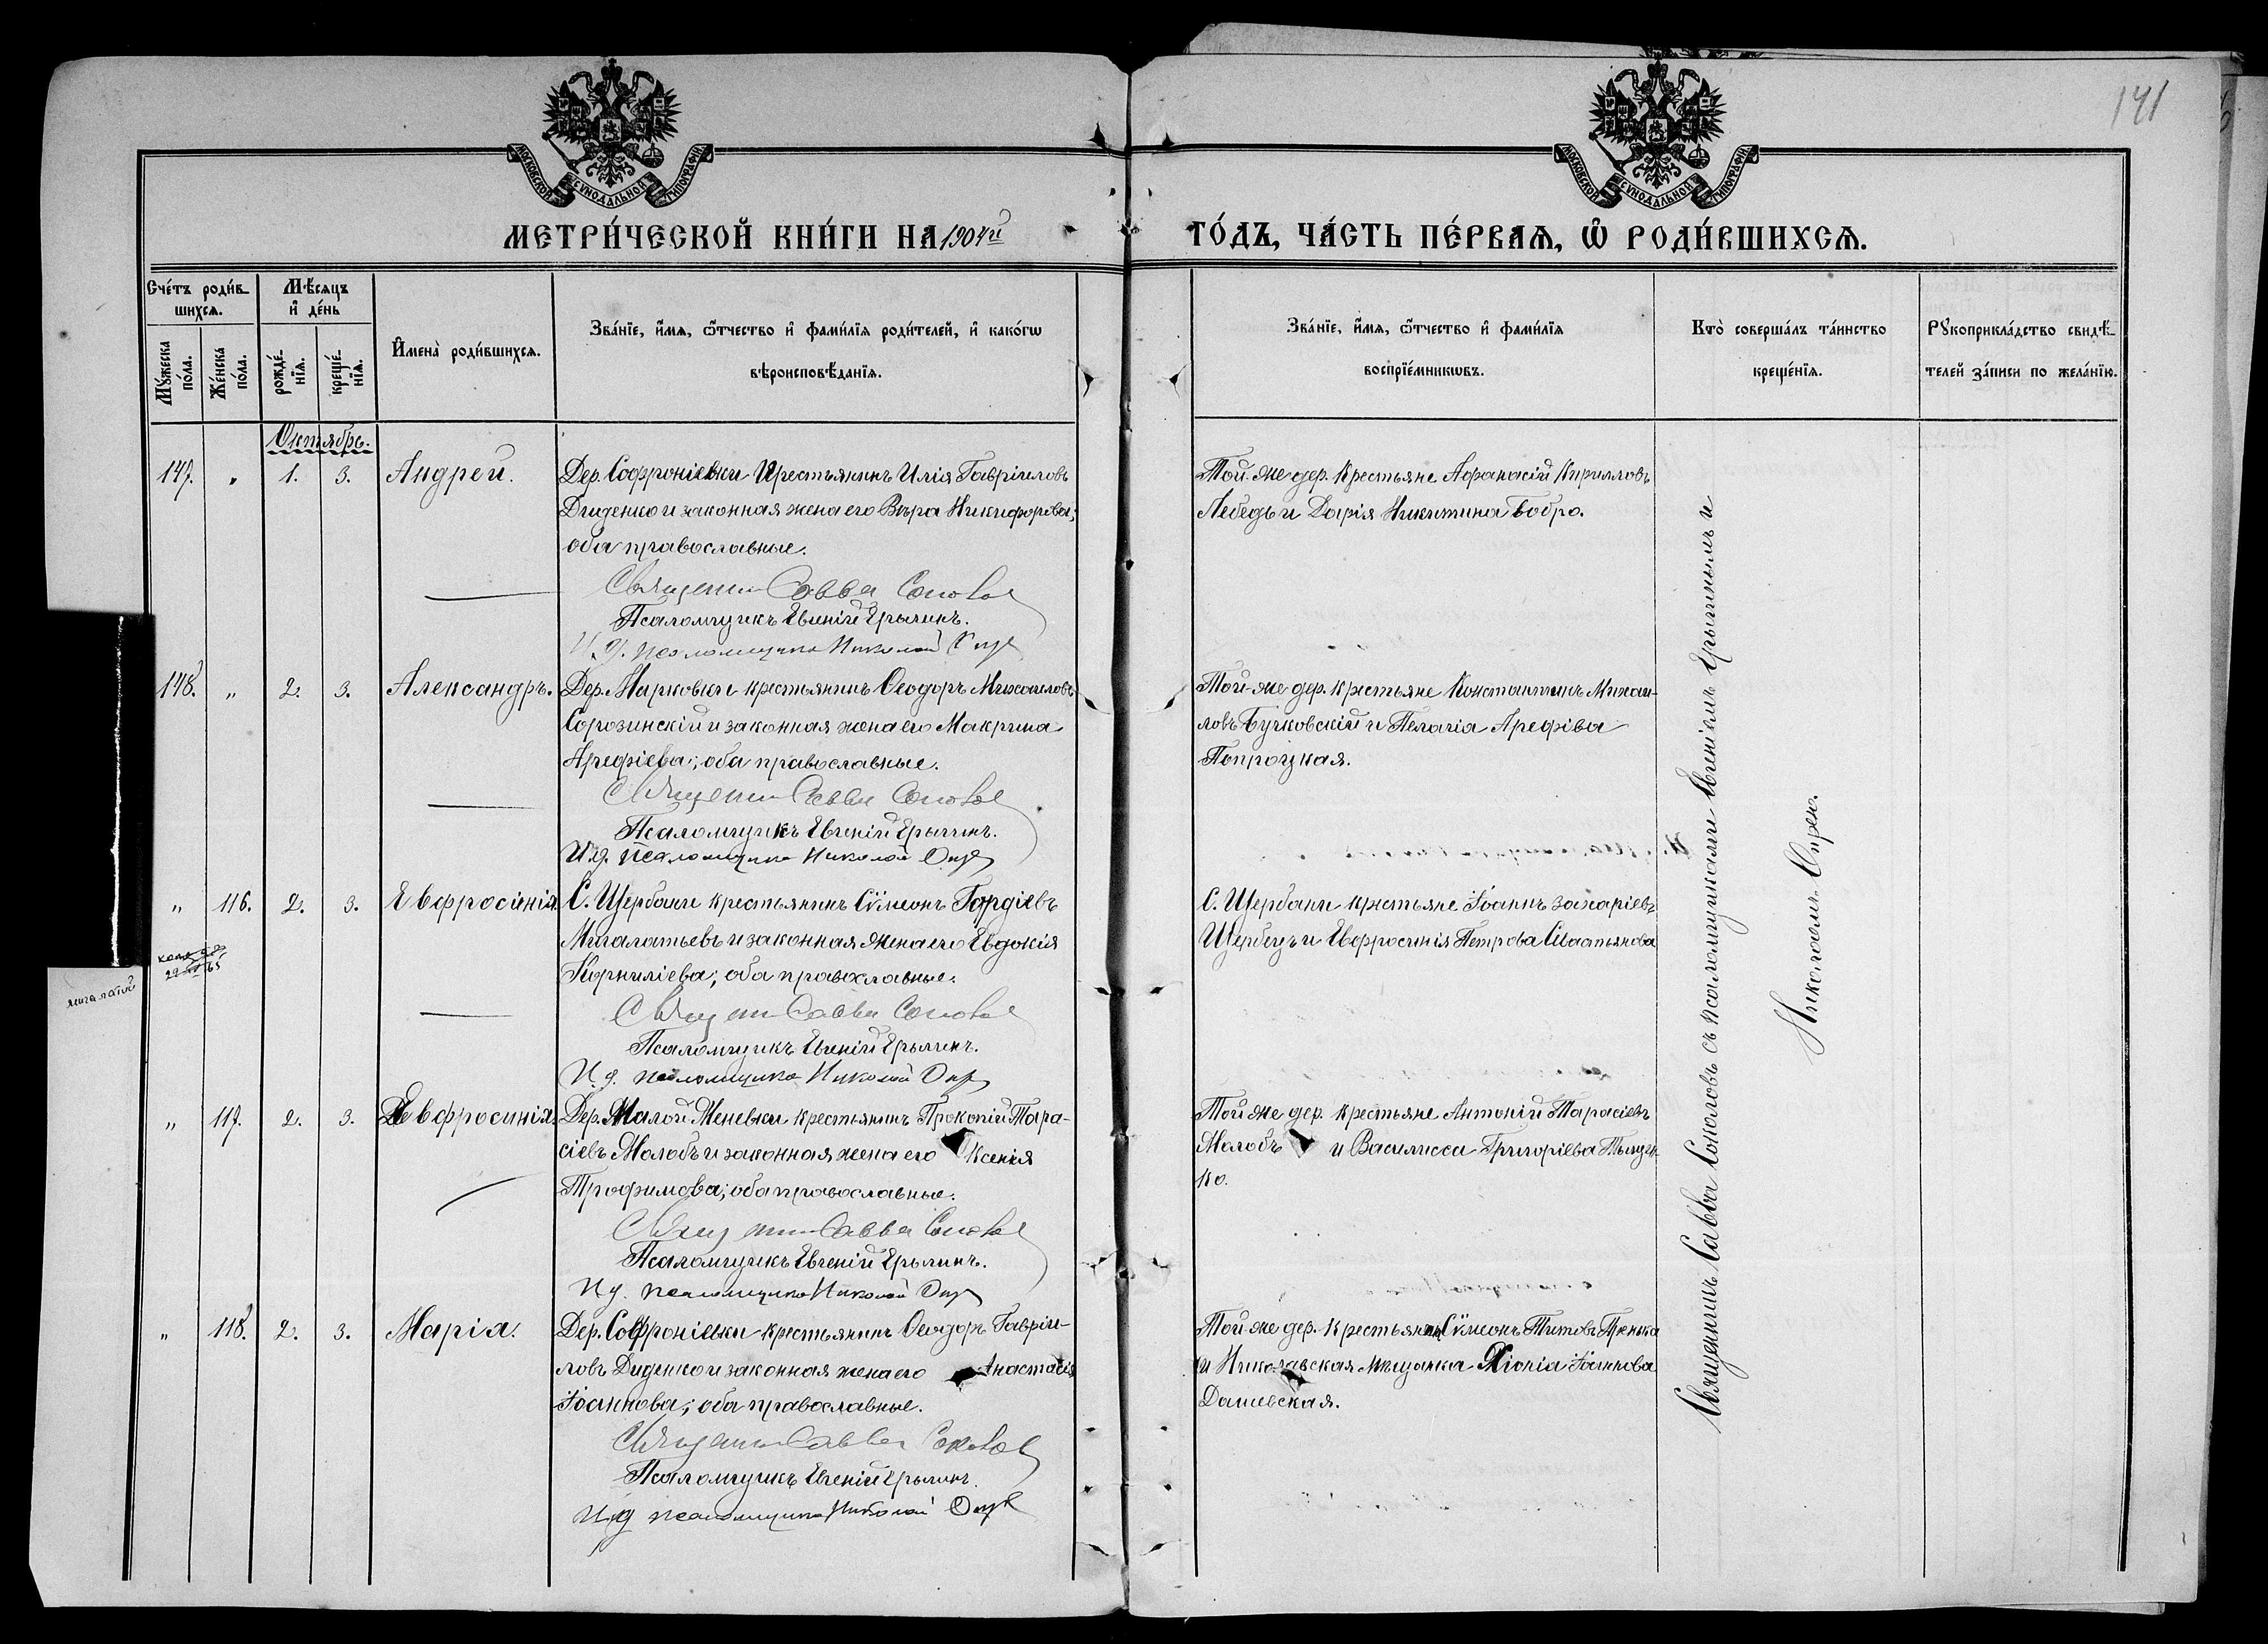 141
МОСКОВСКОЙ СѴНОДАЛЬНОЙ ТИПОГРАФІИ
МОСКОВСКОЙ СѴНОДАЛЬНОЙ ТИПОГРАФІИ
МЕТРИ́ЧЕСКОЙ КНИ́ГИ НА 1904й
ГО́ДЪ, ЧА́СТЬ ПЕ́РВАѦ, Ѡ҆ РОДИ́ВШИХСѦ.
Сче́тъ роди́вшихсѧ.
Мꙋ́жеска по́ла.
Же́нска по́ла.
Мѣ́сѧцъ и҆ де́нь
рожде́нїѧ.
креще́нїѧ.
И҆мена̀ роди́вшихсѧ.
Зва́нїе, и҆́мѧ, ѻ҆́тчество и҆ фами́лїѧ роди́телей, и҆ како́гѡ
вѣроисповѣ́данїѧ.
Зва́нїе, и҆́мѧ, ѻ҆́тчество и҆ фами́лїѧ
воспрїе́мникѡвъ.
Кто̀ соверша́лъ та́инство
креще́нїѧ.
Рꙋкоприкла́дство свидѣ́-
телей за́писи по жела́нїю.
Октябрь.
147. „ 1. 3. Андрей.
Дер. Софроніевки Крестьянинъ Илія Гавріиловъ
Диденко и законная жена его Вѣра Никифорова;
оба православные.
Священникъ Савва Соколов
Псаломщикъ Евгеній Ерыгинъ.
И.д. псаломщика Николай
Той-же дер. Крестьяне Афанасій Кирилловъ
Лебедь и Дарія Никитина Бобро.
148. „ 2. 3. Александръ.
Дер. Марковки крестьянинъ Ѳеодоръ Михаиловъ
Сорозинскій и законная жена его Макрина
Арефіева; оба православные.
Священникъ Савва Соколов
Псаломщикъ Евгеній Ерыгинъ.
И.д. псаломщика Николай
Той-же дер. крестьяне Константинъ Михаи-
ловъ Бучковскій и Пелагія Арефіва
Попроцкая.
„ 116. 2. 3. Евфросинія.
С. Щербани крестьянинъ Сѵмеонъ Гордіевъ
Мигалатьевъ и законная жена его Евдокія
Корниліева; оба православные.
Священникъ Савва Соколов
Псаломщикъ Евгеній Ерыгинъ.
И.д. псаломщика Николай
С. Щербани крестьяне Іоаннъ Захаріевъ
Щербецъ и Евфросинія Петрова
мигалатій
„ 117. 2. 3. Евфросинія.
Дер. Малой Меневки крестьянинъ Прокопій Тара-
сіевъ Молобъ и законная жена его Ксенія
Трофимова; оба православные.
Священникъ Савва Соколов
Псаломщикъ Евгеній Ерыгинъ.
И.д. псаломщика Николай
Той же дер. крестьяне Антоній Тарасіевъ
Молобъ и Василисса Григоріева
ко.
„ 118. 2. 3. Марія.
Дер. Софроніевки крестьянинъ Ѳеодоръ Гавріи-
ловъ Диденко и законная жена его Анастасія
Іоаннова; оба православные.
Священникъ Савва Соколов
Псаломщикъ Евгеній Ерыгинъ.
И.д псаломщика Николай
Той же дер. крестьянинъ Сѵмеонъ Титовъ
и Николавская мѣщанка Хіонія Іоаннова
Дашевская.
Священникъ Савва Соколовъ съ псаломщиками Евгеніемъ Ерыгинымъ и
Николаемъ